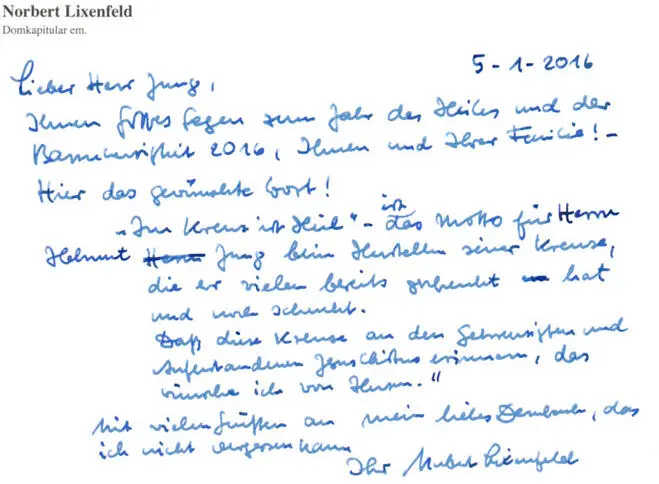 Norbert Lixenfeld
Domkapitular em.
5-1-2016
Lieber Herr Jung,
Ihnen Gottes Segen zum Jahr des Heiles und der
Barmherzigkeit 2016, Ihnen und Ihrer Familie! -
Hier das gewünschte Wort!
„Im Kreuz ist Heil" - ist das Motto für Herrn
Helmut Jung beim Herstellen seiner Kreuze,
die er vielen bereits geschenkt hat
und noch schenkt.
Daß diese Kreuze an den Gekreuzigten und
Auferstandenen Jesus Christus erinnern, das
wünsche ich von Herzen."
Mit vielen Grüßen an mein liebes Dernbach, das
ich nicht vergessen kann
Ihr Norbert Lixenfeld